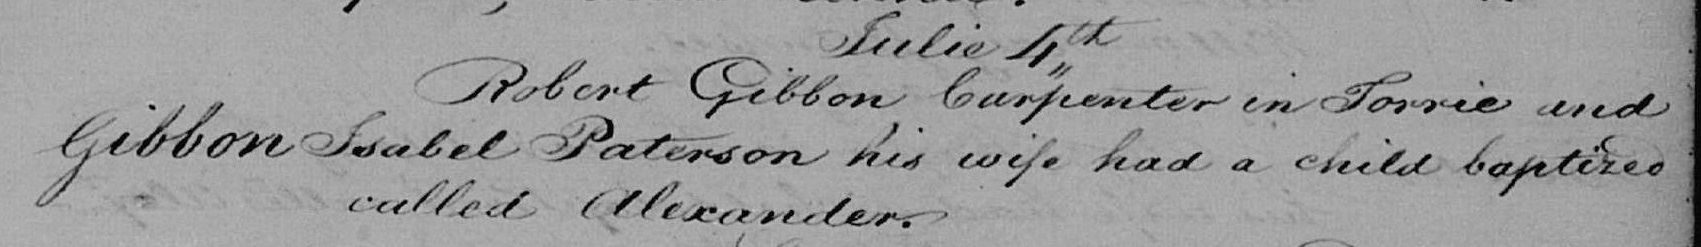 Julie 4th
Robert Gibbon Carpenter in Torrie and
Gibbon Isabel Paterson his wife had a child baptized
called Alexander.